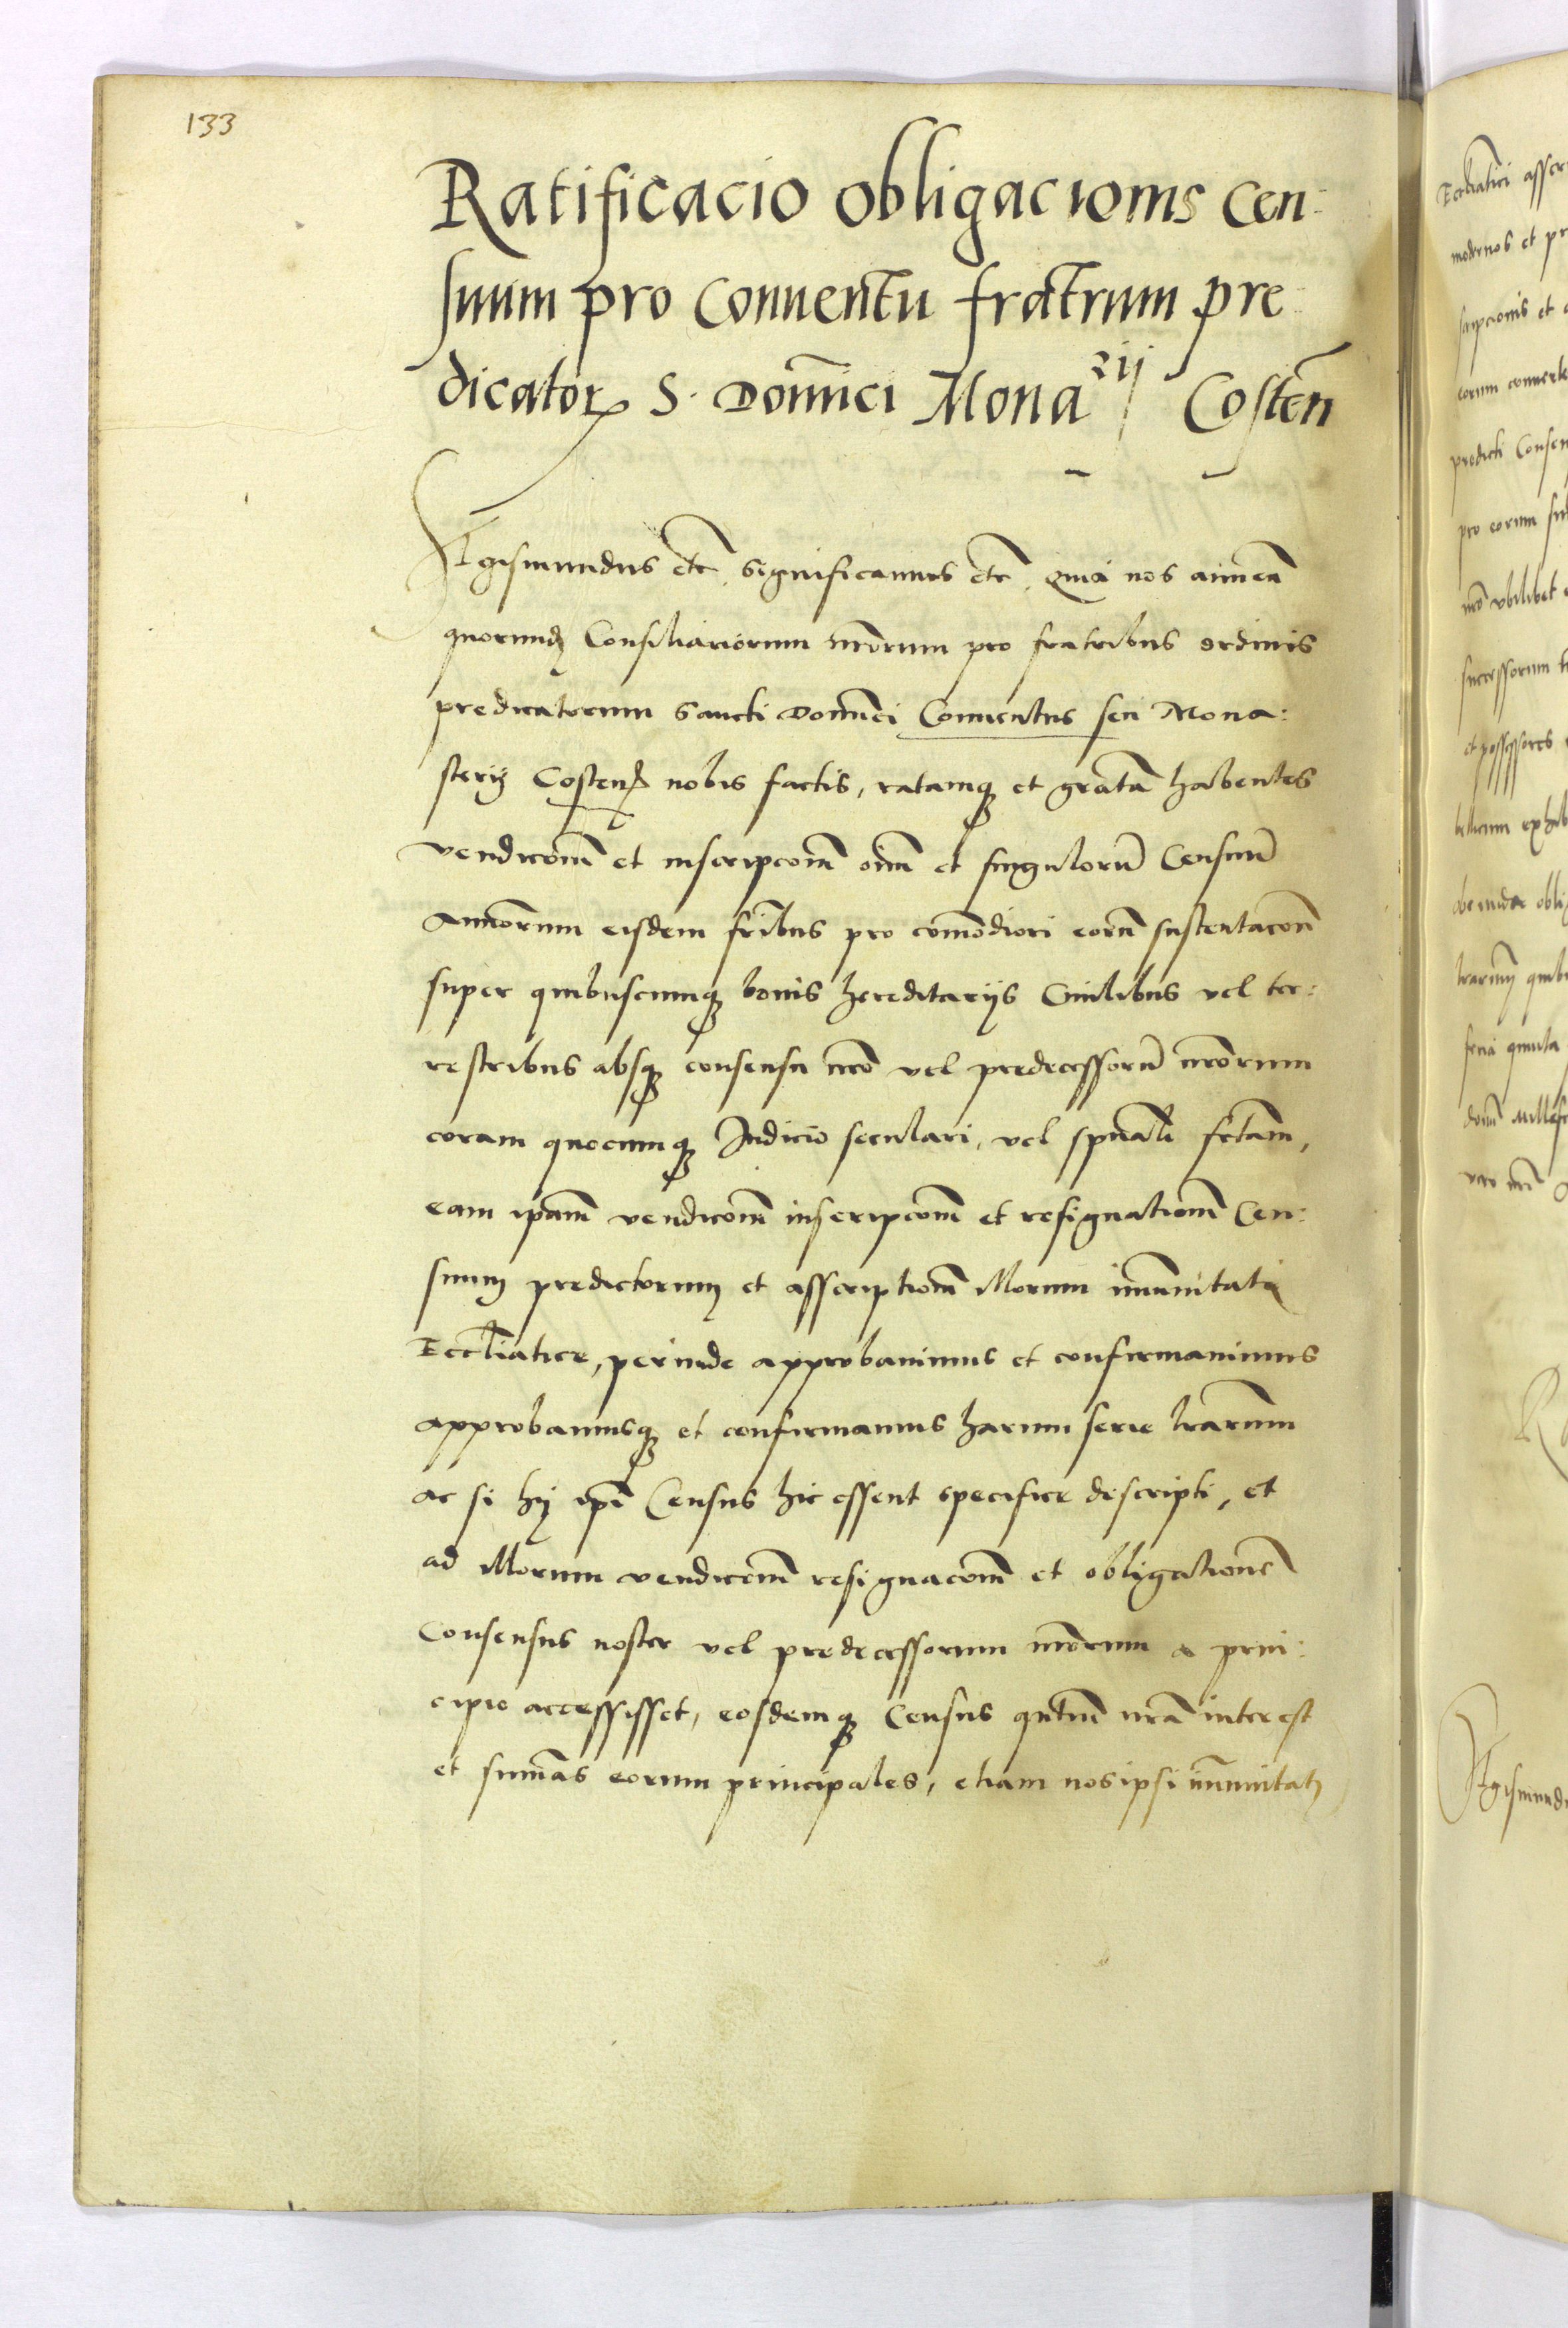 133
Ratificacio obligacionis Cen:
suum pro Conuentu fratrum pre
dicatorꝝ S. Dominici Mona^rij Costeñ
Sigismundus etc̃. Significamus etc̃. Quia nos ad inter̃
quorundã Consiliariorum nr̃orum pro fratribus ordinis
predicatorum Sancti Dominici Conuentus seu Mona:
sterij Costeñ nobis factis, ratamqꝫ et gratã habentes
vendicom̃ et inscripcom̃ oim̃ et singulorũ Censuũ
Annorum eisdem fr̃ibus pro comodiori eorũ sustentacom̃
super quibuscumqꝫ bonis hereditarijs Ciuilibus vel ter:
restribus absqꝫ consensu nr̃o vel predecessorũ nr̃orum
coram quocumqꝫ Iudicio seculari, vel sp̃uali fc̃tam,
eam ip̃am vendicom̃ inscripcom̃ et resignationem̃ Cen:
suum predictorum et asscriptionem̃ illorum im̃unitati
Eccl̃iatice, perinde approbauimus et confirmauimus
approbamusqꝫ et confirmamus harum serie lr̃arum
ac si hij ip̃i Census hic essent specifice descripti, et
ad illorum vendicom̃ resignacom̃ et obligationẽ
Consensus noster vel predecessorum nr̃orum a prin:
cipio accessisset, eosdemqꝫ Census qũtum nr̃a interest
et sum̃as eorum principales, etiam nos ipsi im̃unitati
Eccl̃iatici asser
modernos et pr
scripcionis et
eorum conuent
predicti Consen
pro eorum
nr̃o vbilibet
successorum
et possessores
exhib
obli
quib
Sigismund